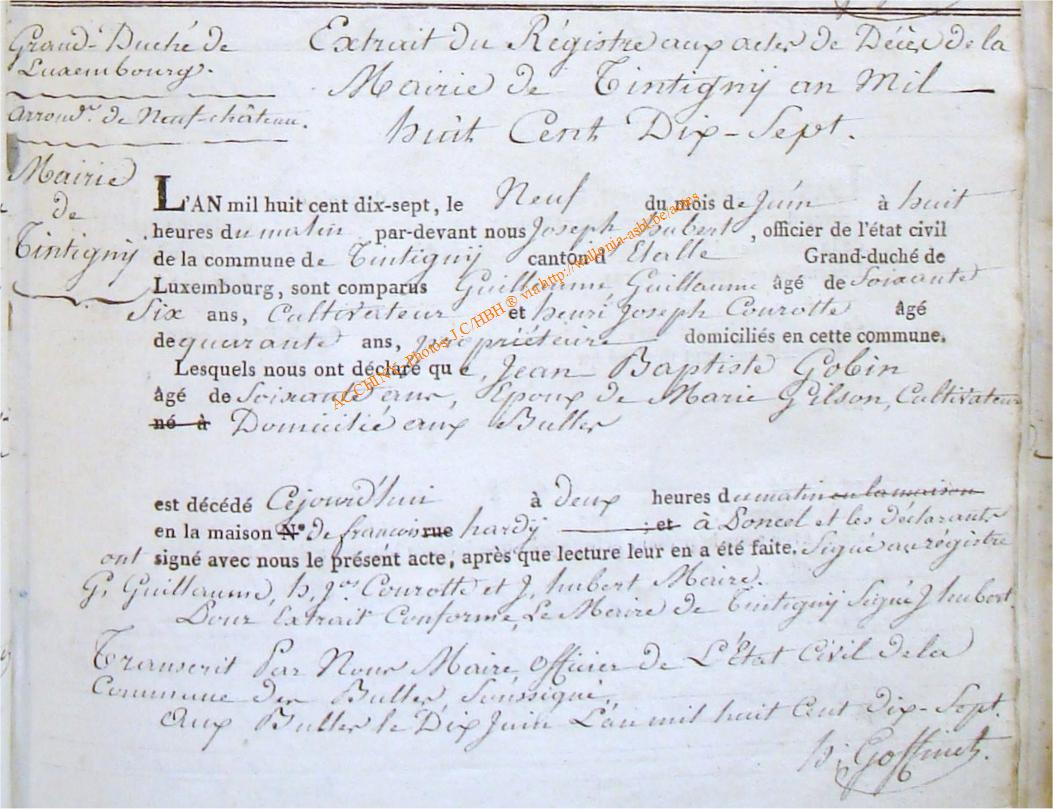 Grand-Duché de
Luxembourg.
arrond.t de Neuf-château.
Mairie
de
Tintigny
Extrait du Régistre aux actes de Décès de la
Mairie de Tintigny an Mil
huit Cent Dix-Sept.
L'AN mil huit cent dix-sept, le Neuf du mois de Juin à huit
heures du matin par-devant nous Joseph hubert, officier de l'état civil
de la commune de Tintigny canton d'Etalle Grand-duché de
Luxembourg, sont comparus Guillaume Guillaume âgé de Soixante
Six ans, Cultivateur et henri Joseph Courotte âgé
de quarante ans, propriétaire domiciliés en cette commune.
Lesquels nous ont déclaré que, Jean Baptiste Gobin
âgé de Soixante ans, Epoux de Marie Gilson, Cultivateur
né à Domicilié aux Bulles
est décédé Cejourd'hui à deux heures du matin en la maison
en la maison N.º de françois rue hardy ; et à Poncel et les déclarants
ont signé avec nous le présent acte, après que lecture leur en a été faite. Signé au régistre
G. Guillaume, h. J.os Courotte et J. hubert Maire.
Pour Extrait Conforme, Le Maire de Tintigny Signé J hubert.
Transcrit Par Nous Maire, officier de L'état Civil de la
Commune des Bulles, Soussigné,
aux Bulles le Dix Juin L'an mil huit Cent dix-Sept.
h. Goffinet.
A. CCHINA Photos J.C/HBH ® via http://wallonia-asbl.be/actes